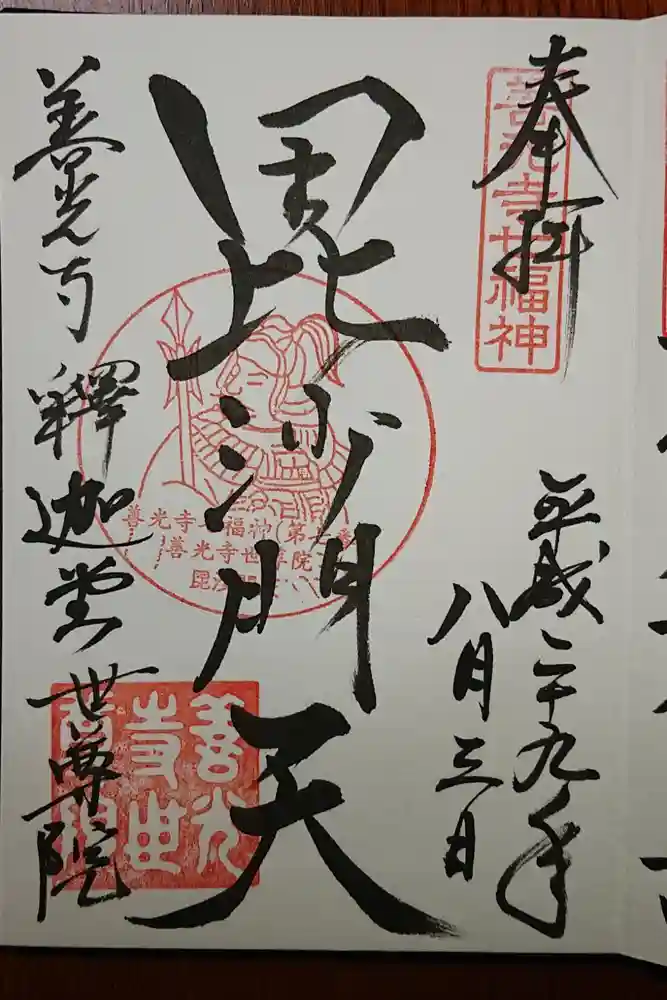 奉拝
善光寺七福神
平成二十九年
八月三日
毘沙門天
善光寺七福神(第二番
善光寺世尊院
毘沙門天
善光寺釋迦堂世尊院
善光
寺世